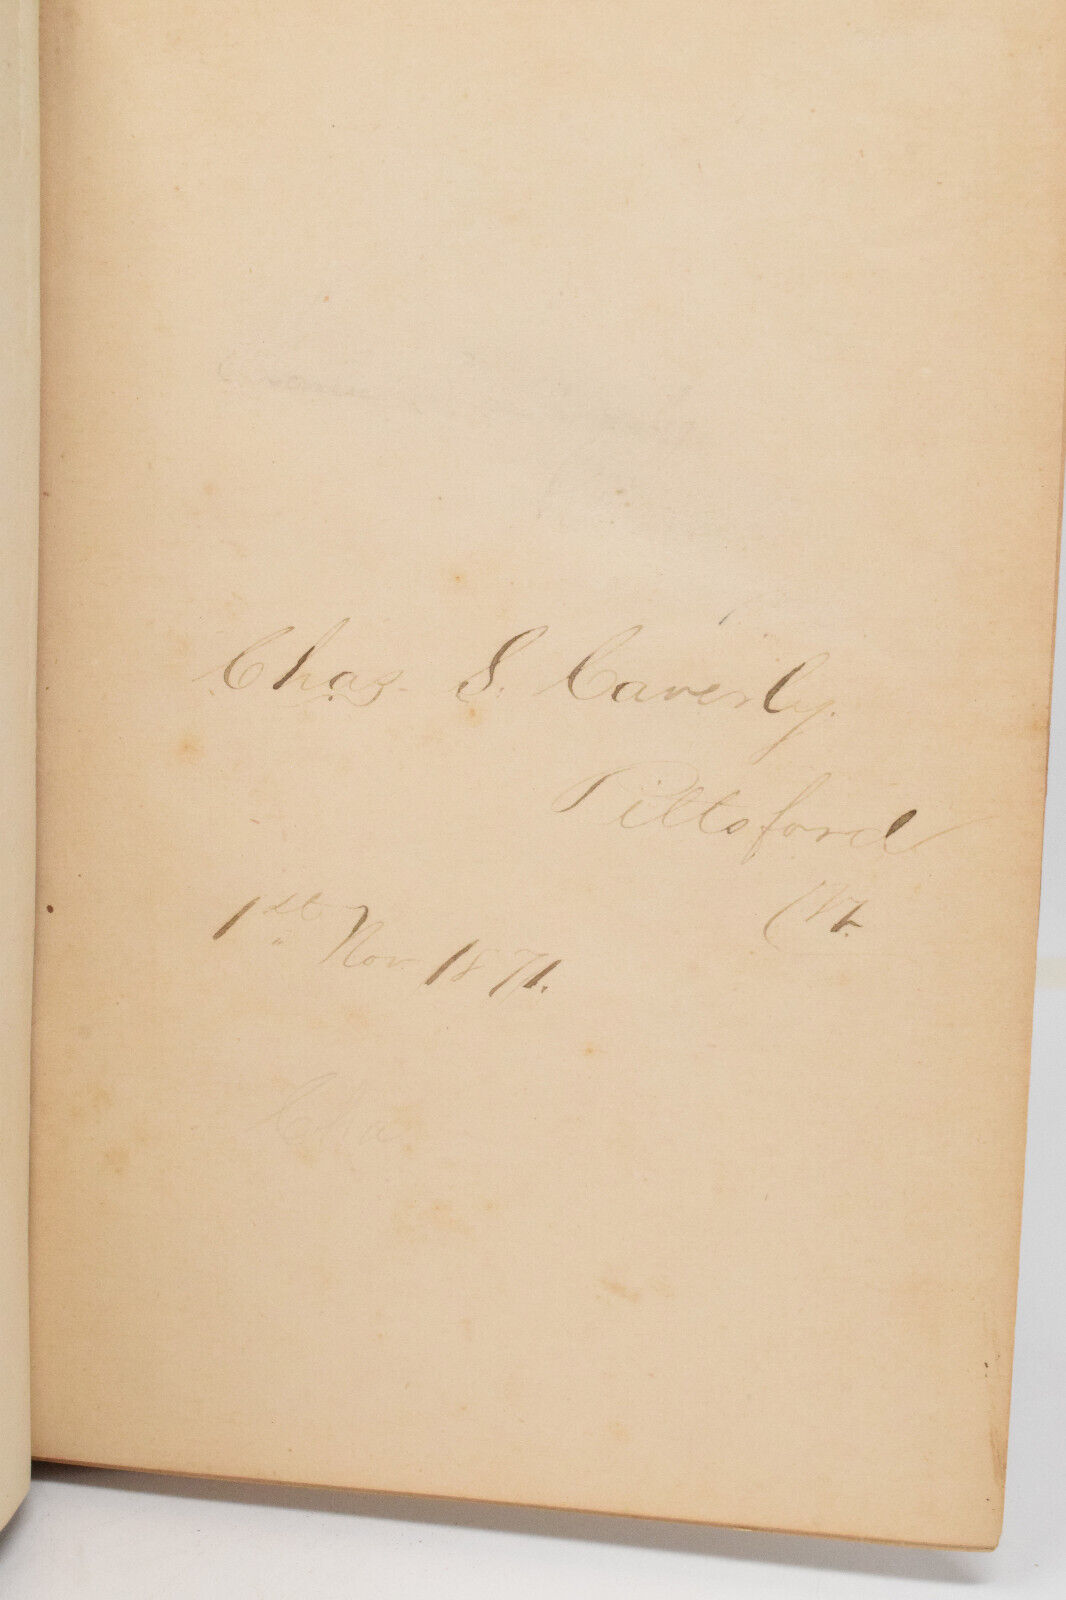 Chas. S. Caverly.
Pittsford
Vt.
1st Nov. 1871.
Cha